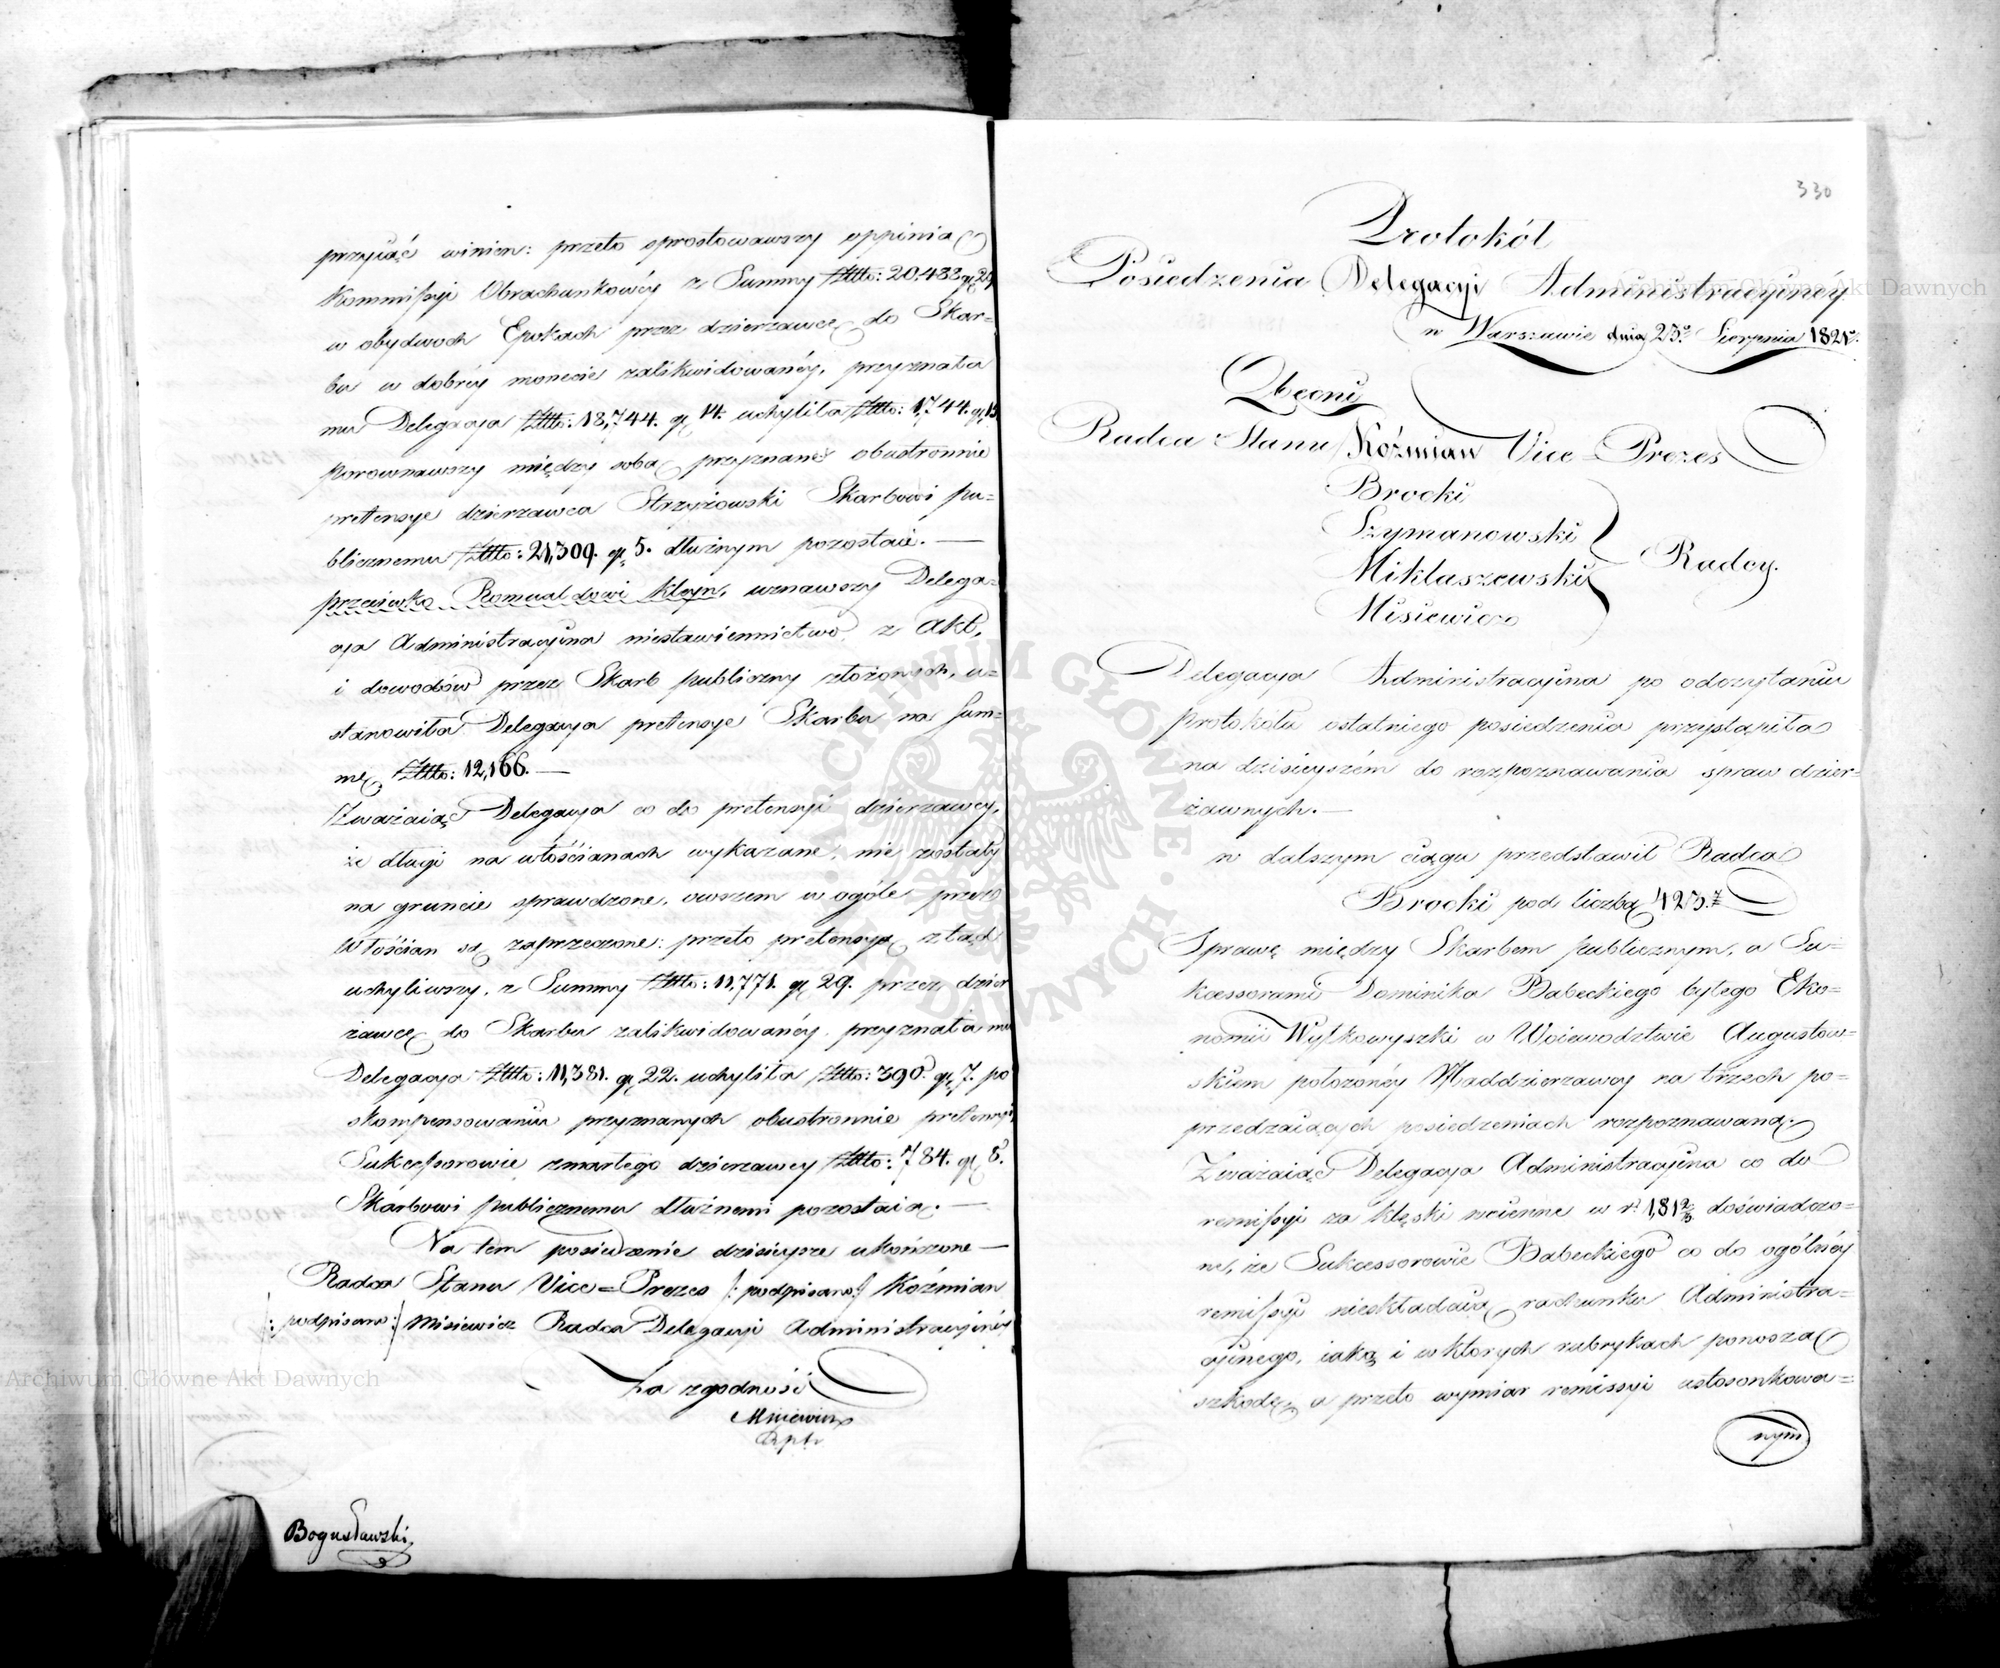 przyiąć winien: przeto sprostowawszy oppinią
Kommissyi Obrachunkowéy z Summy Złłto: 20,488 gr 29
w obydwoch Epokach przez dzierzawcę do Skar=
bu w dobréy monecie zalikwidowanéy, przyznała
mu Delegacya Złłto: 18,744. gr 14. uchyliła Złłto: 1,744. gr 15
porownawszy między sobą przyznane obustronnie
pretensye dzierzawca Strzyżowski Skarbowi pu=
blicznemu Złłto: 21,309. gr 5. dłużnym pozostaie. —
przeciwko Romualdowi Kleyn, uznawszy Delega=
cya Administracyina niestawiennictwo, z Akt,
i dowodów przez Skarb publiczny złożonych, u=
stanowiła Delegacya pretensye Skarbu na Sum=
mę Złłto: 12,166. —
Zważaiąc Delegacya co do pretensyi dzierzawcy,
że długi na włościanach wykazane, nie zostały
na gruncie sprawdzone, owszem w ogóle przez
Włościan są zaprzeczone: przeto pretensyą ztąd
uchyliwszy, z Summy Złłto: 11,771. gr 29. przez dzier
żawcę do Skarbu zalikwidowanéy, przyznała mu
Delegacya Złłto: 11,381. gr 22. uchyliła Złłto: 390. gr 7. po
skompensowaniu przyznanych obustronnie pretensyi,
Sukcessorowie zmarłego dzierzawcy Złłto: 784. gr 8.
Skarbowi publicznemu dłużnemi pozostaią. —
Na tem posiedzenie dzisieysze ukończone —
Radca Stanu Vice=Prezes /: podpisano :/ Koźmian
/: podpisano :/ Misiewicz Radca Delegacyi Administracyinéy
Za zgodność
Misiewicz
Bogusławski
330
Protokół
Posiedzenia Delegacyi Administracyinéy
w Warszawie dnia 23o Sierpnia 1821 r.
Obecni
Radca Stanu Koźmian Vice=Prezes
Brocki
Szymanowski
Miklaszewski
Misiewicz
Radcy.
Delegacya Administracyina po odczytaniu
protokółu ostatniego posiedzenia przystąpiła
na dzisieyszém do rozpoznawania spraw dzier=
żawnych. —
w dalszym ciągu przedstawił Radca
Brocki pod liczbą 423.
Sprawę między Skarbem publicznym, a Su=
kcessorami Dominika Babeckiego byłego Eko=
nomii Wyłkowyszki w Woiewodztwie Augustow=
skiem położonéy Naddzierzawcy na trzech po=
przedzaiących posiedzeniach rozpoznawaną.
Zważaiąc Delegacya Administracyina co do
remissyi za klęski woienne w r. 1812/3 doświadczo=
ne, że Sukcessorowie Babeckiego co do ogólnéy
remissyi nieskładaią rachunku Administra=
cyinego, iaką i w których rubrykach ponoszą
szkodę, a przeto wymiar remissyi ustosonkowa=
nym
Archiwum Główne Akt Dawnych
Archiwum Główne Akt Dawnych
ARCHIWUM GŁÓWNE AKT DAWNYCH